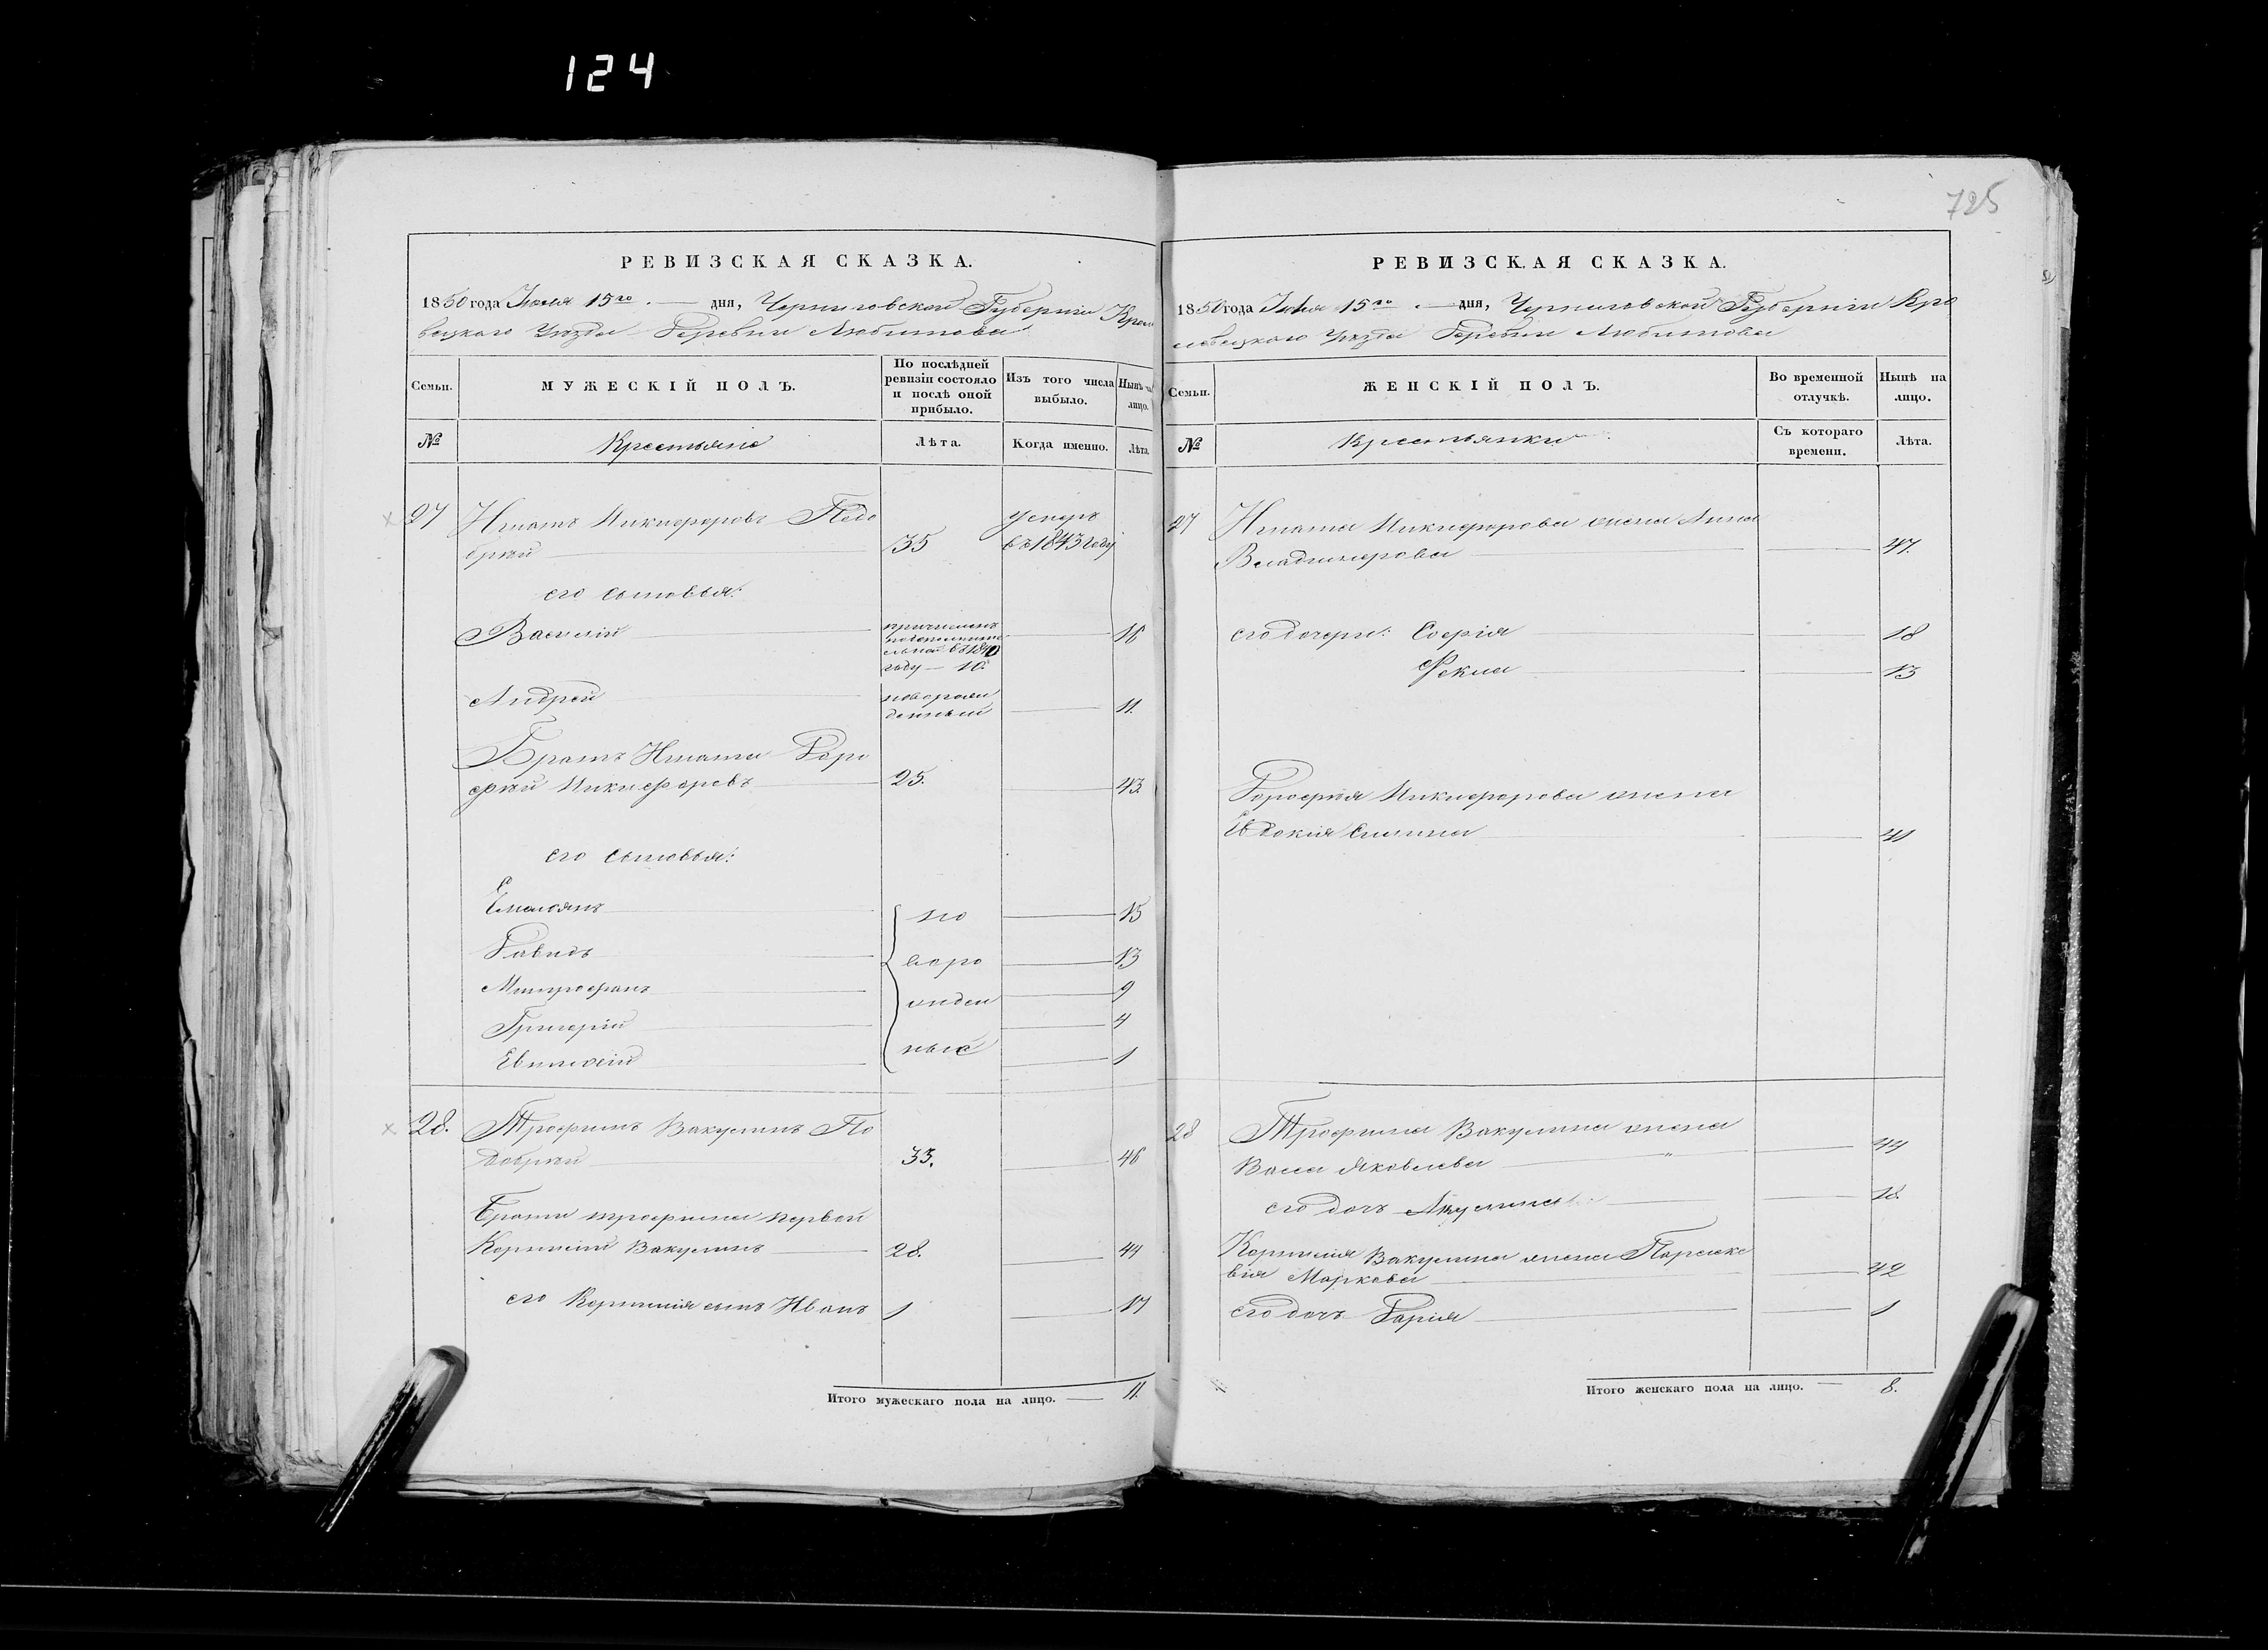 124
725
РЕВИЗСКАЯ СКАЗКА.
1850 года Июля 15го дня, Черниговской Губерніи Кроле
вецкого Уѣзда Деревни Любитова
Семьи.
МУЖЕСКІЙ ПОЛЪ.
По послѣдней
ревизіи состояло
и послѣ оной
прибыло.
Изъ того числа
выбыло.
Нынѣ на
лицо.
№
Крестьяне
Лѣта.
Когда именно.
Лѣта.
27 Игнатъ Никифоровъ Подо
брій 35 умеръ
въ 1843 году
его сыновья:
Василій 16
году — 10.
Андрей новорож
денный 11.
Братъ Игната Доро
фѣй Никифоровъ 25. 43.
его сыновья:
Емельянъ но 15
Давидъ воро 13
Митрофанъ 9
Григорій жден 4
Евтихій ные 1
28. Трофимъ Вакулинъ По
добрій 33. 46
Братья трофима первой
Корнилій Вакулинъ 28. 44
его Корнилія сынъ Иванъ 1 17
Итого мужескаго пола на лицо. — 11.
РЕВИЗСКАЯ СКАЗКА.
1850 года Июля 15го дня, Черниговской Губерніи Кро
левецкого Уѣзда Деревни Любитова
Семьи.
ЖЕНСКІЙ ПОЛЪ.
Во временной
отлучкѣ.
Нынѣ на
лицо.
№
Крестьянки
Съ котораго
времени.
Лѣта.
27 Игната Никифорова жена Анна
Владимерова 47.
его дочери: Софія 18
Фекла 13
Дорофѣя Никифорова жена
Евдокія Емлина 41
28 Трофима Вакулина жена
Васса Яковлева 44
его дочь Акулина 18.
Корнилія Вакулина жена Параске
вія Маркова 42
его дочь Дарія 1
Итого женскаго пола на лицо. — 8.